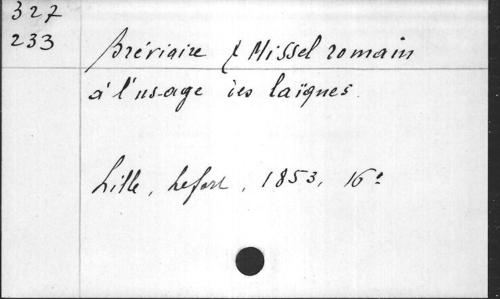 327
233
Bréviaire & Missel romain
à l'usage des laïques.
Lille, Lefort, 1853, 16°